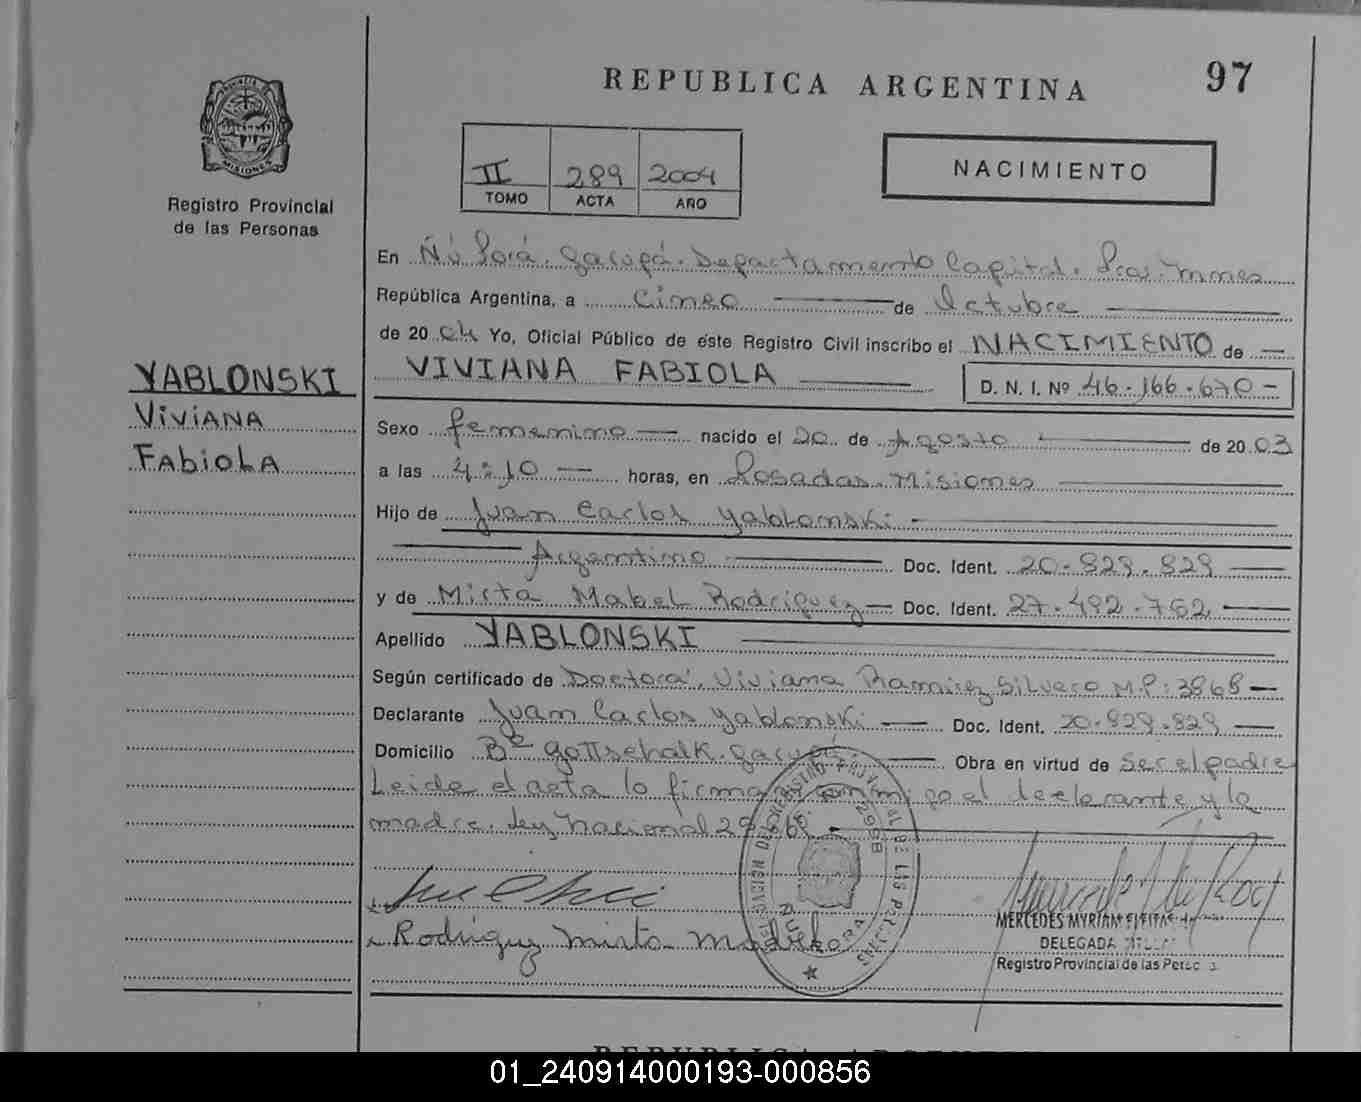 REPUBLICA ARGENTINA
97
MISIONES
Registro Provincial
de las Personas
II 289 2004
TOMO ACTA AÑO
NACIMIENTO
En Ñú Porá. Garupá. Departamento Capital. Pcas. Mnes
República Argentina, a cinco de Octubre
de 20 04 Yo, Oficial Público de este Registro Civil inscribo el NACIMIENTO de
YABLONSKI
VIVIANA
FABIOLA
VIVIANA FABIOLA
D. N. I. Nº 46.166.670
Sexo femenino nacido el 20 de Agosto de 20 03
a las 4:10 horas, en Posadas. Misiones
Hijo de Juan Carlos Yablonski
Argentino Doc. Ident. 20.829.829
y de Mirta Mabel Rodriguez Doc. Ident. 27.492.762
Apellido YABLONSKI
Según certificado de Doctora, Viviana Ramirez Silvero M.P: 3868
Declarante Juan Carlos Yablonski Doc. Ident. 20.829.829
Domicilio Bº Gottschalk. Garupá. Obra en virtud de Ser el padre
Leida el acta la firma conmigo el declarante y la
madre. Ley Nacional
Rodriguez Mirta
MERCEDES MYRIAM
DELEGADA
Registro Provincial de las Perso
REPUBLICA
01_240914000193-000856